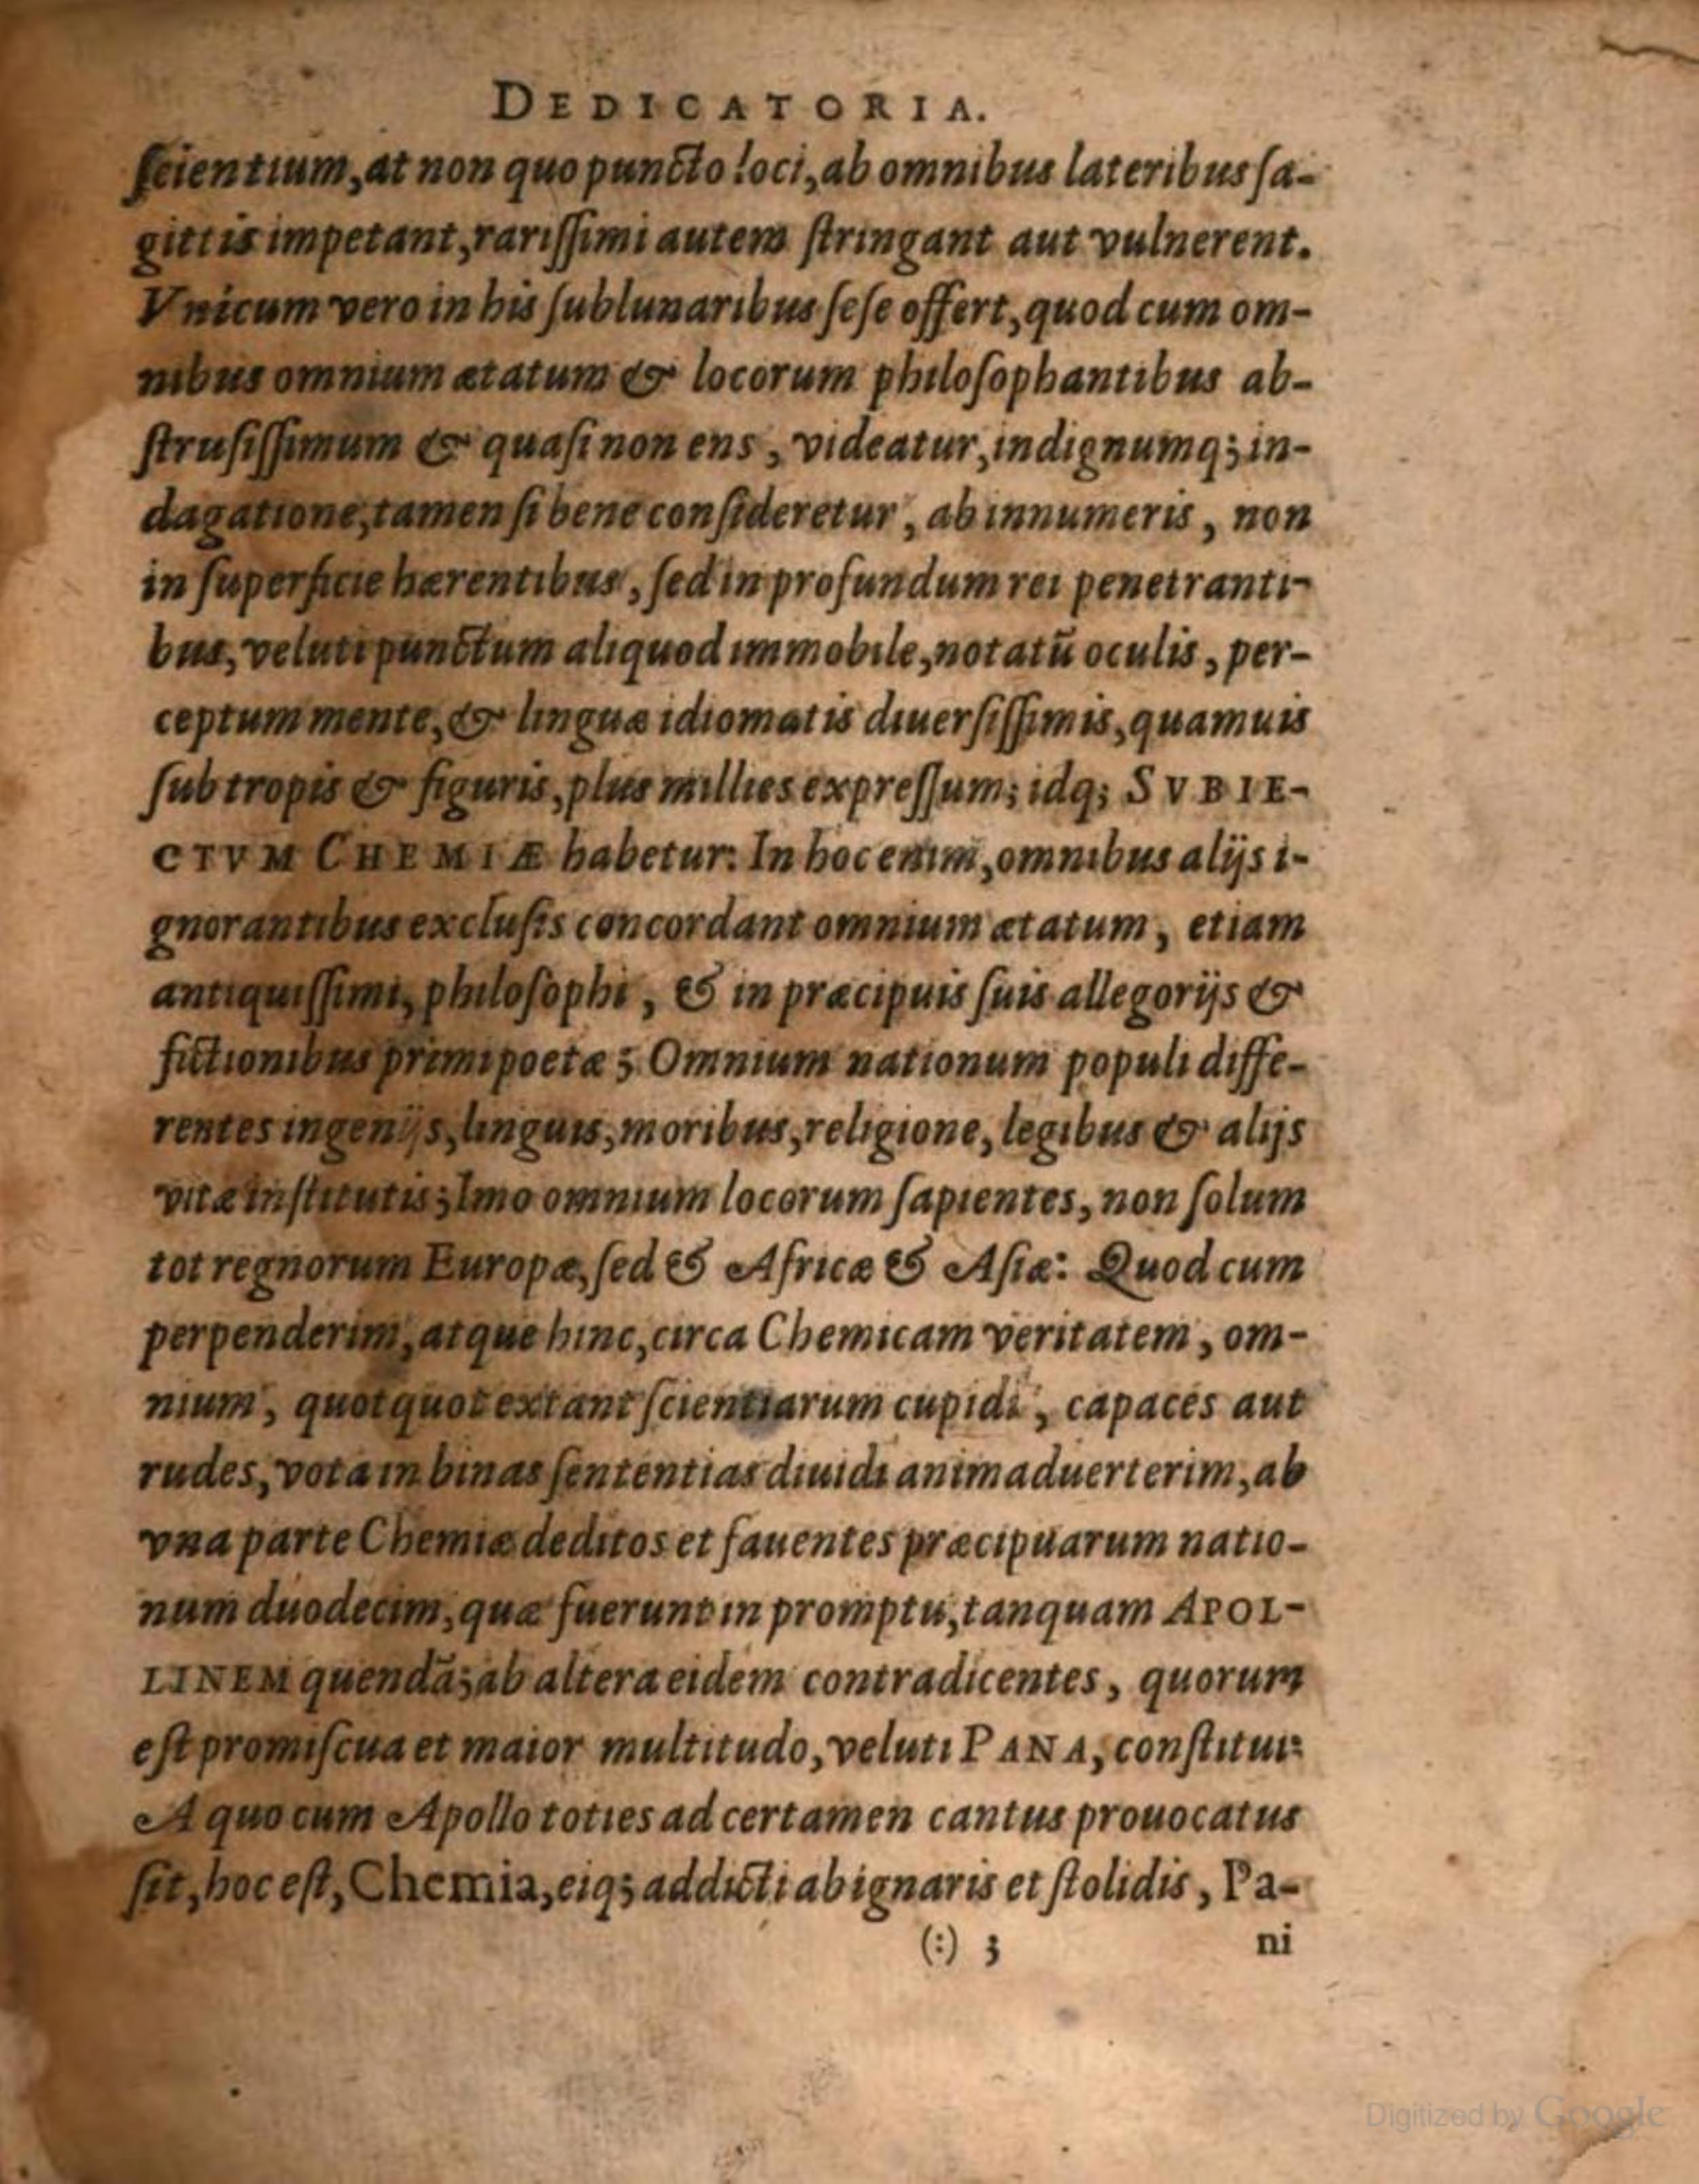 DEDICATORIA.
ſcientium, at non quo puncto loci, ab omnibus lateribus ſa-
gittis impetant, rariſſimi autem ſtringant aut vulnerent.
Vnicum vero in his ſublunaribus ſeſe offert, quod cum om-
nibus omnium ætatum & locorum philoſophantibus ab-
ſtruſiſſimum & quaſi non ens, videatur, indignumq; in-
dagatione, tamen ſi bene conſideretur, ab innumeris, non
in ſuperficie hærentibus, ſed in profundum rei penetranti-
bus, veluti punctum aliquod immobile, notatũ oculis, per-
ceptum mente, & linguæ idiomatis diuerſiſſimis, quamuis
ſub tropis & figuris, plus millies expreſſum; idq; SVBIE-
CTVM CHEMIÆ habetur: In hoc enim, omnibus alijs i-
gnorantibus excluſis concordant omnium ætatum, etiam
antiquiſſimi, philoſophi, & in præcipuis ſuis allegorijs &
fictionibus primi poetæ; Omnium nationum populi diffe-
rentes ingenijs, linguis, moribus, religione, legibus & alijs
vitæ inſtitutis; Imo omnium locorum ſapientes, non ſolum
tot regnorum Europæ, ſed & Africæ & Aſiæ: Quod cum
perpenderim, atque hinc, circa Chemicam veritatem, om-
nium, quotquot extant ſcientiarum cupidi, capaces aut
rudes, vota in binas ſententias diuidi animaduerterim, ab
vna parte Chemiæ deditos et fauentes præcipuarum natio-
num duodecim, quæ fuerunt in promptu, tanquam APOL-
LINEM quendã; ab altera eidem contradicentes, quorum
eſt promiſcua et maior multitudo, veluti PANA, conſtitui:
A quo cum Apollo toties ad certamen cantus prouocatus
ſit, hoc eſt, Chemia, eiq; addicti ab ignaris et ſtolidis, Pa-
(:) 3 ni
Digitized by Google